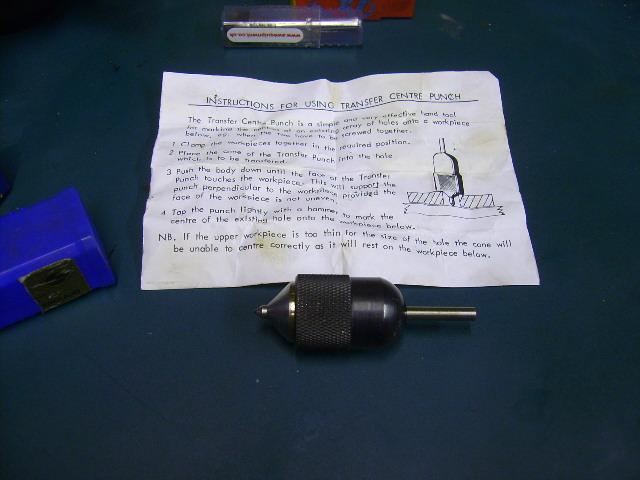 www.axequipment.co.uk
INSTRUCTIONS FOR USING TRANSFER CENTRE PUNCH
The Transfer Centre Punch is a simple and very effective hand tool
for marking the position of an existing array of holes onto a workpiece
below, eg. where the two have to be screwed together.
1 Clamp the workpieces together in the required position.
2 Place the cone of the Transfer Punch into the hole
which is to be transferred.
3 Push the body down until the face of the Transfer
Punch touches the workpiece. This will support the
punch perpendicular to the workpiece provided the
face of the workpiece is not uneven.
4 Tap the punch lightly with a hammer to mark the
centre of the existing hole onto the workpiece below.
NB. If the upper workpiece is too thin for the size of the hole the cone will
be unable to centre correctly as it will rest on the workpiece below.